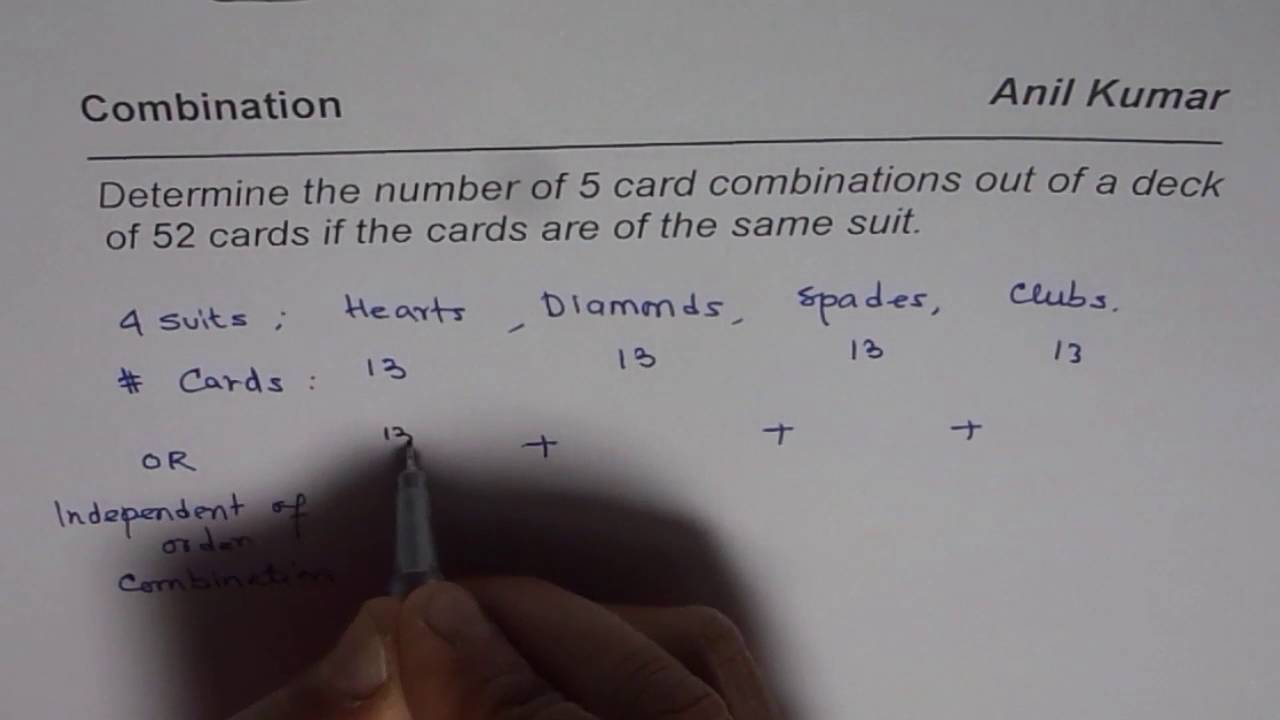 Combination
Anil Kumar
Determine the number of 5 card combinations out of a deck
of 52 cards if the cards are of the same suit.
4 suits ; Hearts , Diamonds, Spades, Clubs.
# Cards : 13 13 13 13
OR 13 + + +
Independent of
order
Combination